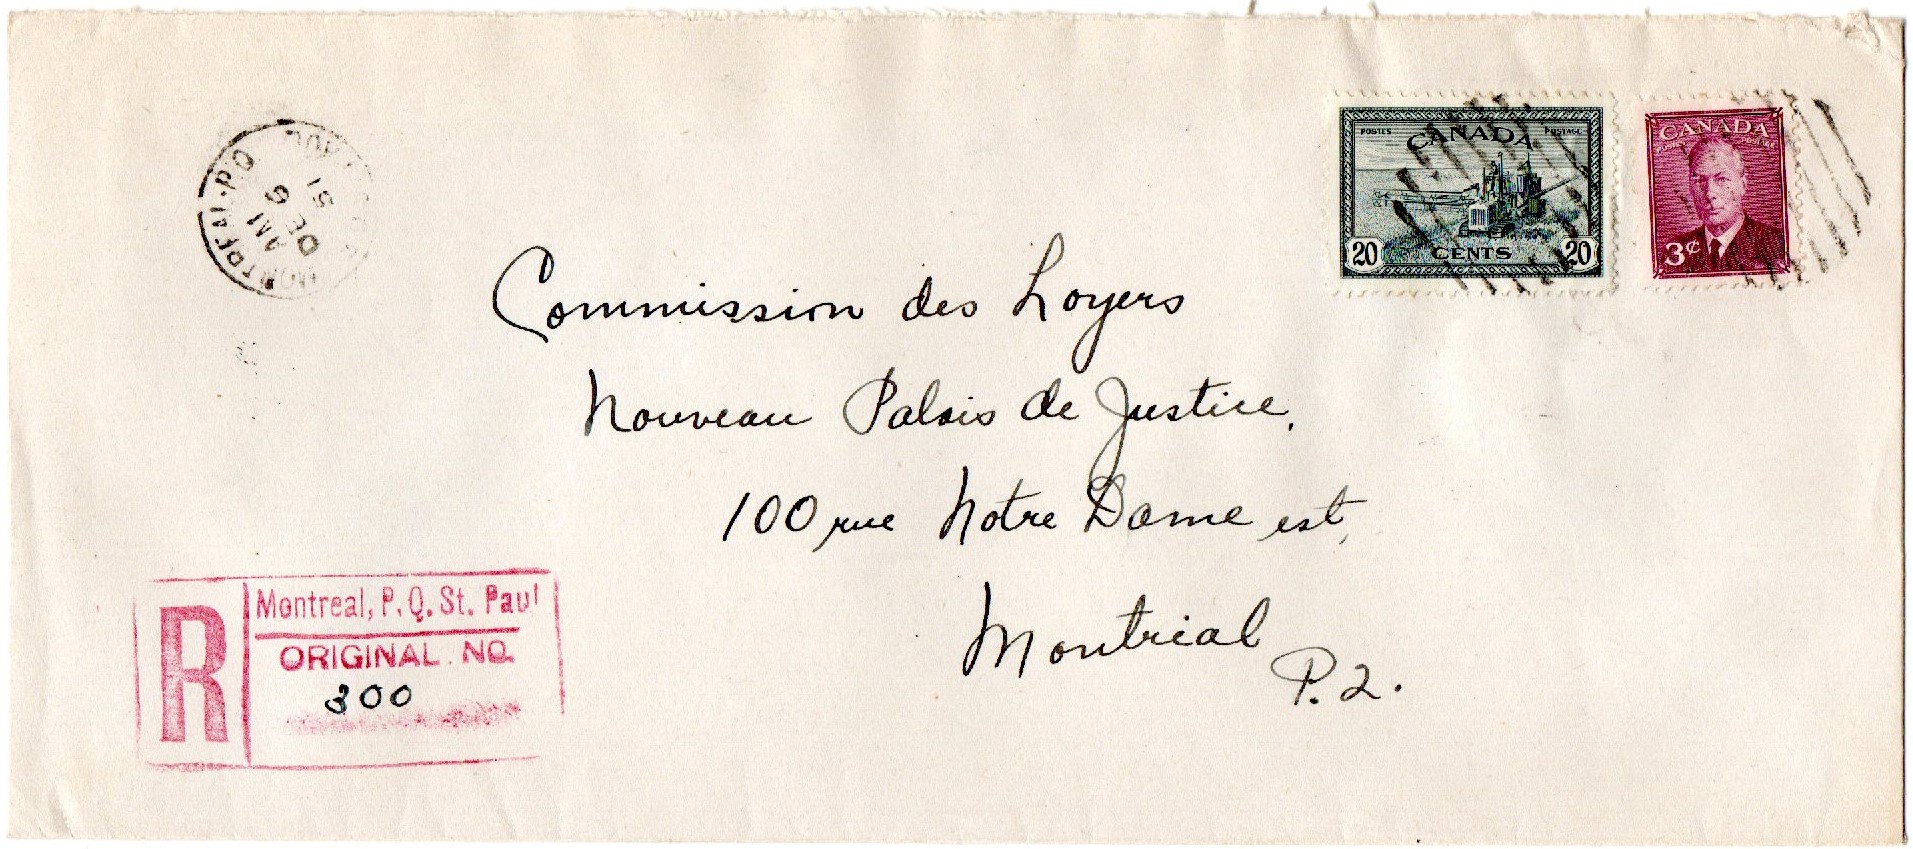 AM
DE 6
51
CANADA
POSTES POSTAGE
20 CENTS 20
CANADA
POSTES POSTAGE
3¢
Commission des Loyers
Nouveau Palais de Justice.
100 rue Notre Dame est,
Montréal
P.Q.
R
Montreal, P. Q. St. Paul
ORIGINAL NO.
300